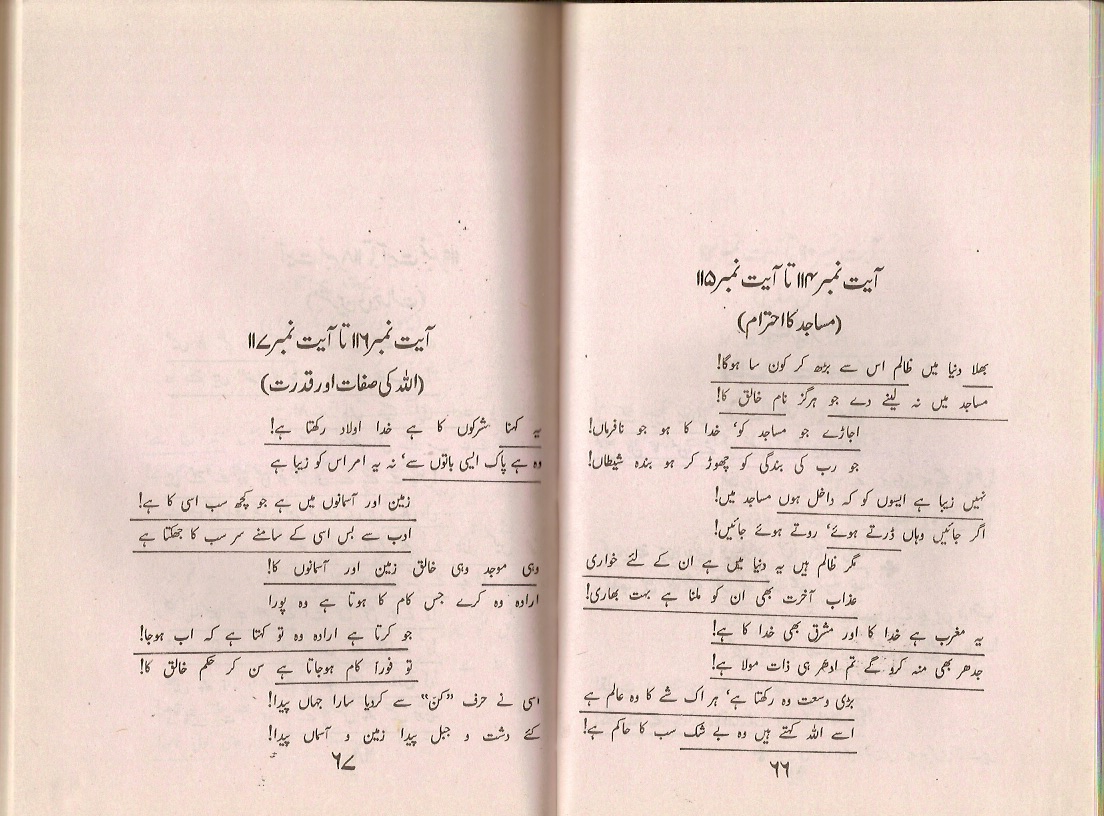 آیت نمبر ۱۱۴ تا آیت نمبر ۱۱۵
(مساجد کا احترام)
بھلا دنیا میں ظالم اس سے بڑھ کر کون سا ہوگا!
مساجد میں نہ لینے دے جو ہرگز نام خالق کا!
اجاڑے جو مساجد کو، خدا کا ہو جو نافرماں!
جو رب کی بندگی کو چھوڑ کر ہو بندہ شیطاں!
نہیں زیبا ہے ایسوں کو کہ داخل ہوں مساجد میں!
اگر جائیں وہاں ڈرتے ہوئے، روتے ہوئے جائیں!
مگر ظالم ہیں یہ دنیا میں ہے ان کے لئے خواری
عذاب آخرت بھی ان کو ملنا ہے بہت بھاری!
یہ مغرب ہے خدا کا اور مشرق بھی خدا کا ہے!
جدھر بھی منہ کرو گے تم ادھر ہی ذات مولا ہے!
بڑی وسعت وہ رکھتا ہے، ہر اک شے کا وہ عالم ہے
اسے اللہ کہتے ہیں وہ بے شک سب کا حاکم ہے!
۶۶
آیت نمبر ۱۱۶ تا آیت نمبر ۱۱۷
(اللہ کی صفات اور قدرت)
یہ کہنا مشرکوں کا ہے خدا اولاد رکھتا ہے!
وہ ہے پاک ایسی باتوں سے، نہ یہ امر اس کو زیبا ہے
زمین اور آسمانوں میں ہے جو کچھ سب اسی کا ہے!
ادب سے بس اسی کے سامنے سر سب کا جھکتا ہے
وہی موجد وہی خالق زمین اور آسمانوں کا!
ارادہ وہ کرے جس کام کا ہوتا ہے وہ پورا
جو کرتا ہے ارادہ وہ تو کہتا ہے کہ اب ہوجا!
تو فوراً کام ہوجاتا ہے سن کر حکم خالق کا!
اسی نے حرف "کن" سے کردیا سارا جہاں پیدا!
کئے دشت و جبل پیدا زمین و آسماں پیدا!
۶۷